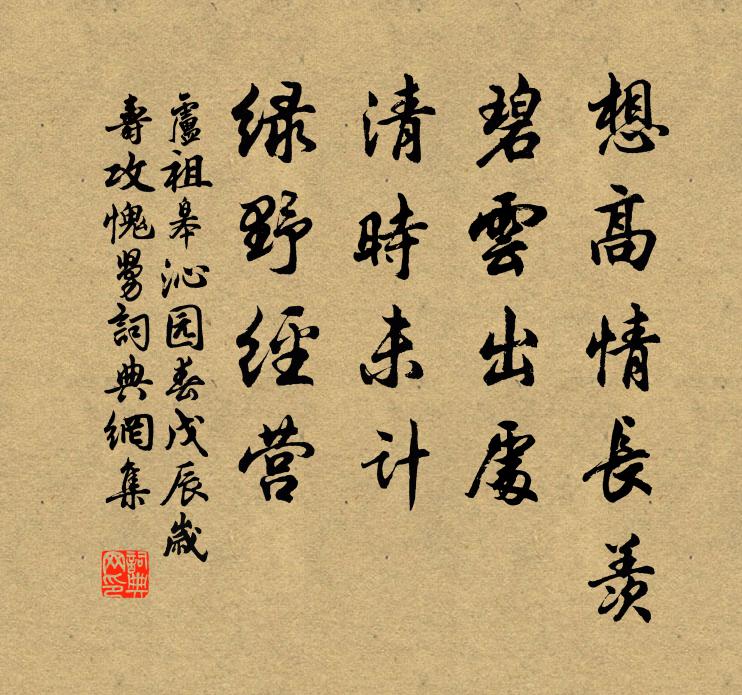 想高情長羨
碧雲出處
清時未計
緑野經营
盧祖皋沁园春戊辰歲
壽攻愧舅詞典網集
詞典网印